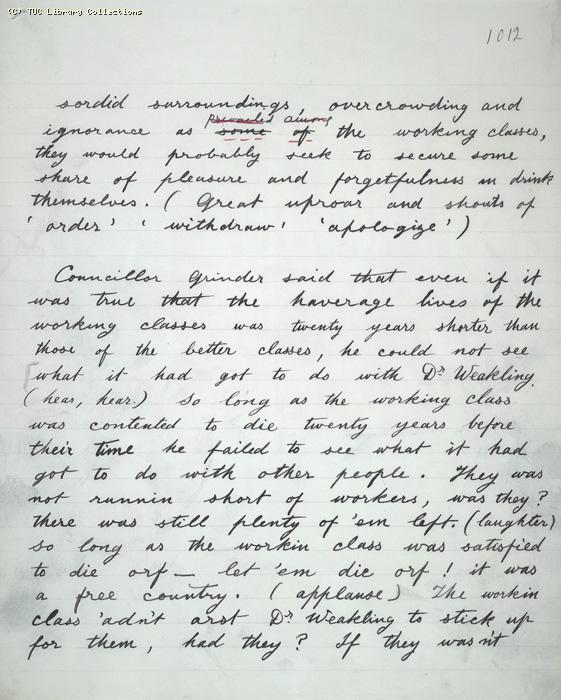 (C) TUC Library Collections
1012
sordid surroundings, overcrowding and
prevailed among
ignorance as some of the working classes,
they would probably seek to secure some
share of pleasure and forgetfulness in drink
themselves. (Great uproar and shouts of
'order' 'withdraw' 'apologize')
Councillor Grinder said that even if it
was true that the haverage lives of the
working classes was twenty years shorter than
those of the better classes, he could not see
what it had got to do with Dr Weakling.
(hear, hear.) So long as the working class
was contented to die twenty years before
their time he failed to see what it had
got to do with other people. They was
not runnin short of workers, was they?
there was still plenty of 'em left. (laughter)
So long as the workin class was satisfied
to die orf — let 'em die orf! it was
a free country. (applause) The workin
class 'adn't arst Dr Weakling to stick up
for them, had they? If they wasn't